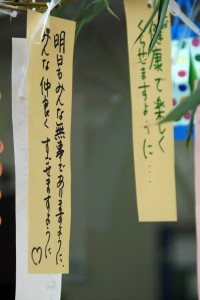 明日もみんな無事でありますように、
みんな仲良くすごせますように♡
健康で楽しく
くらせますように…